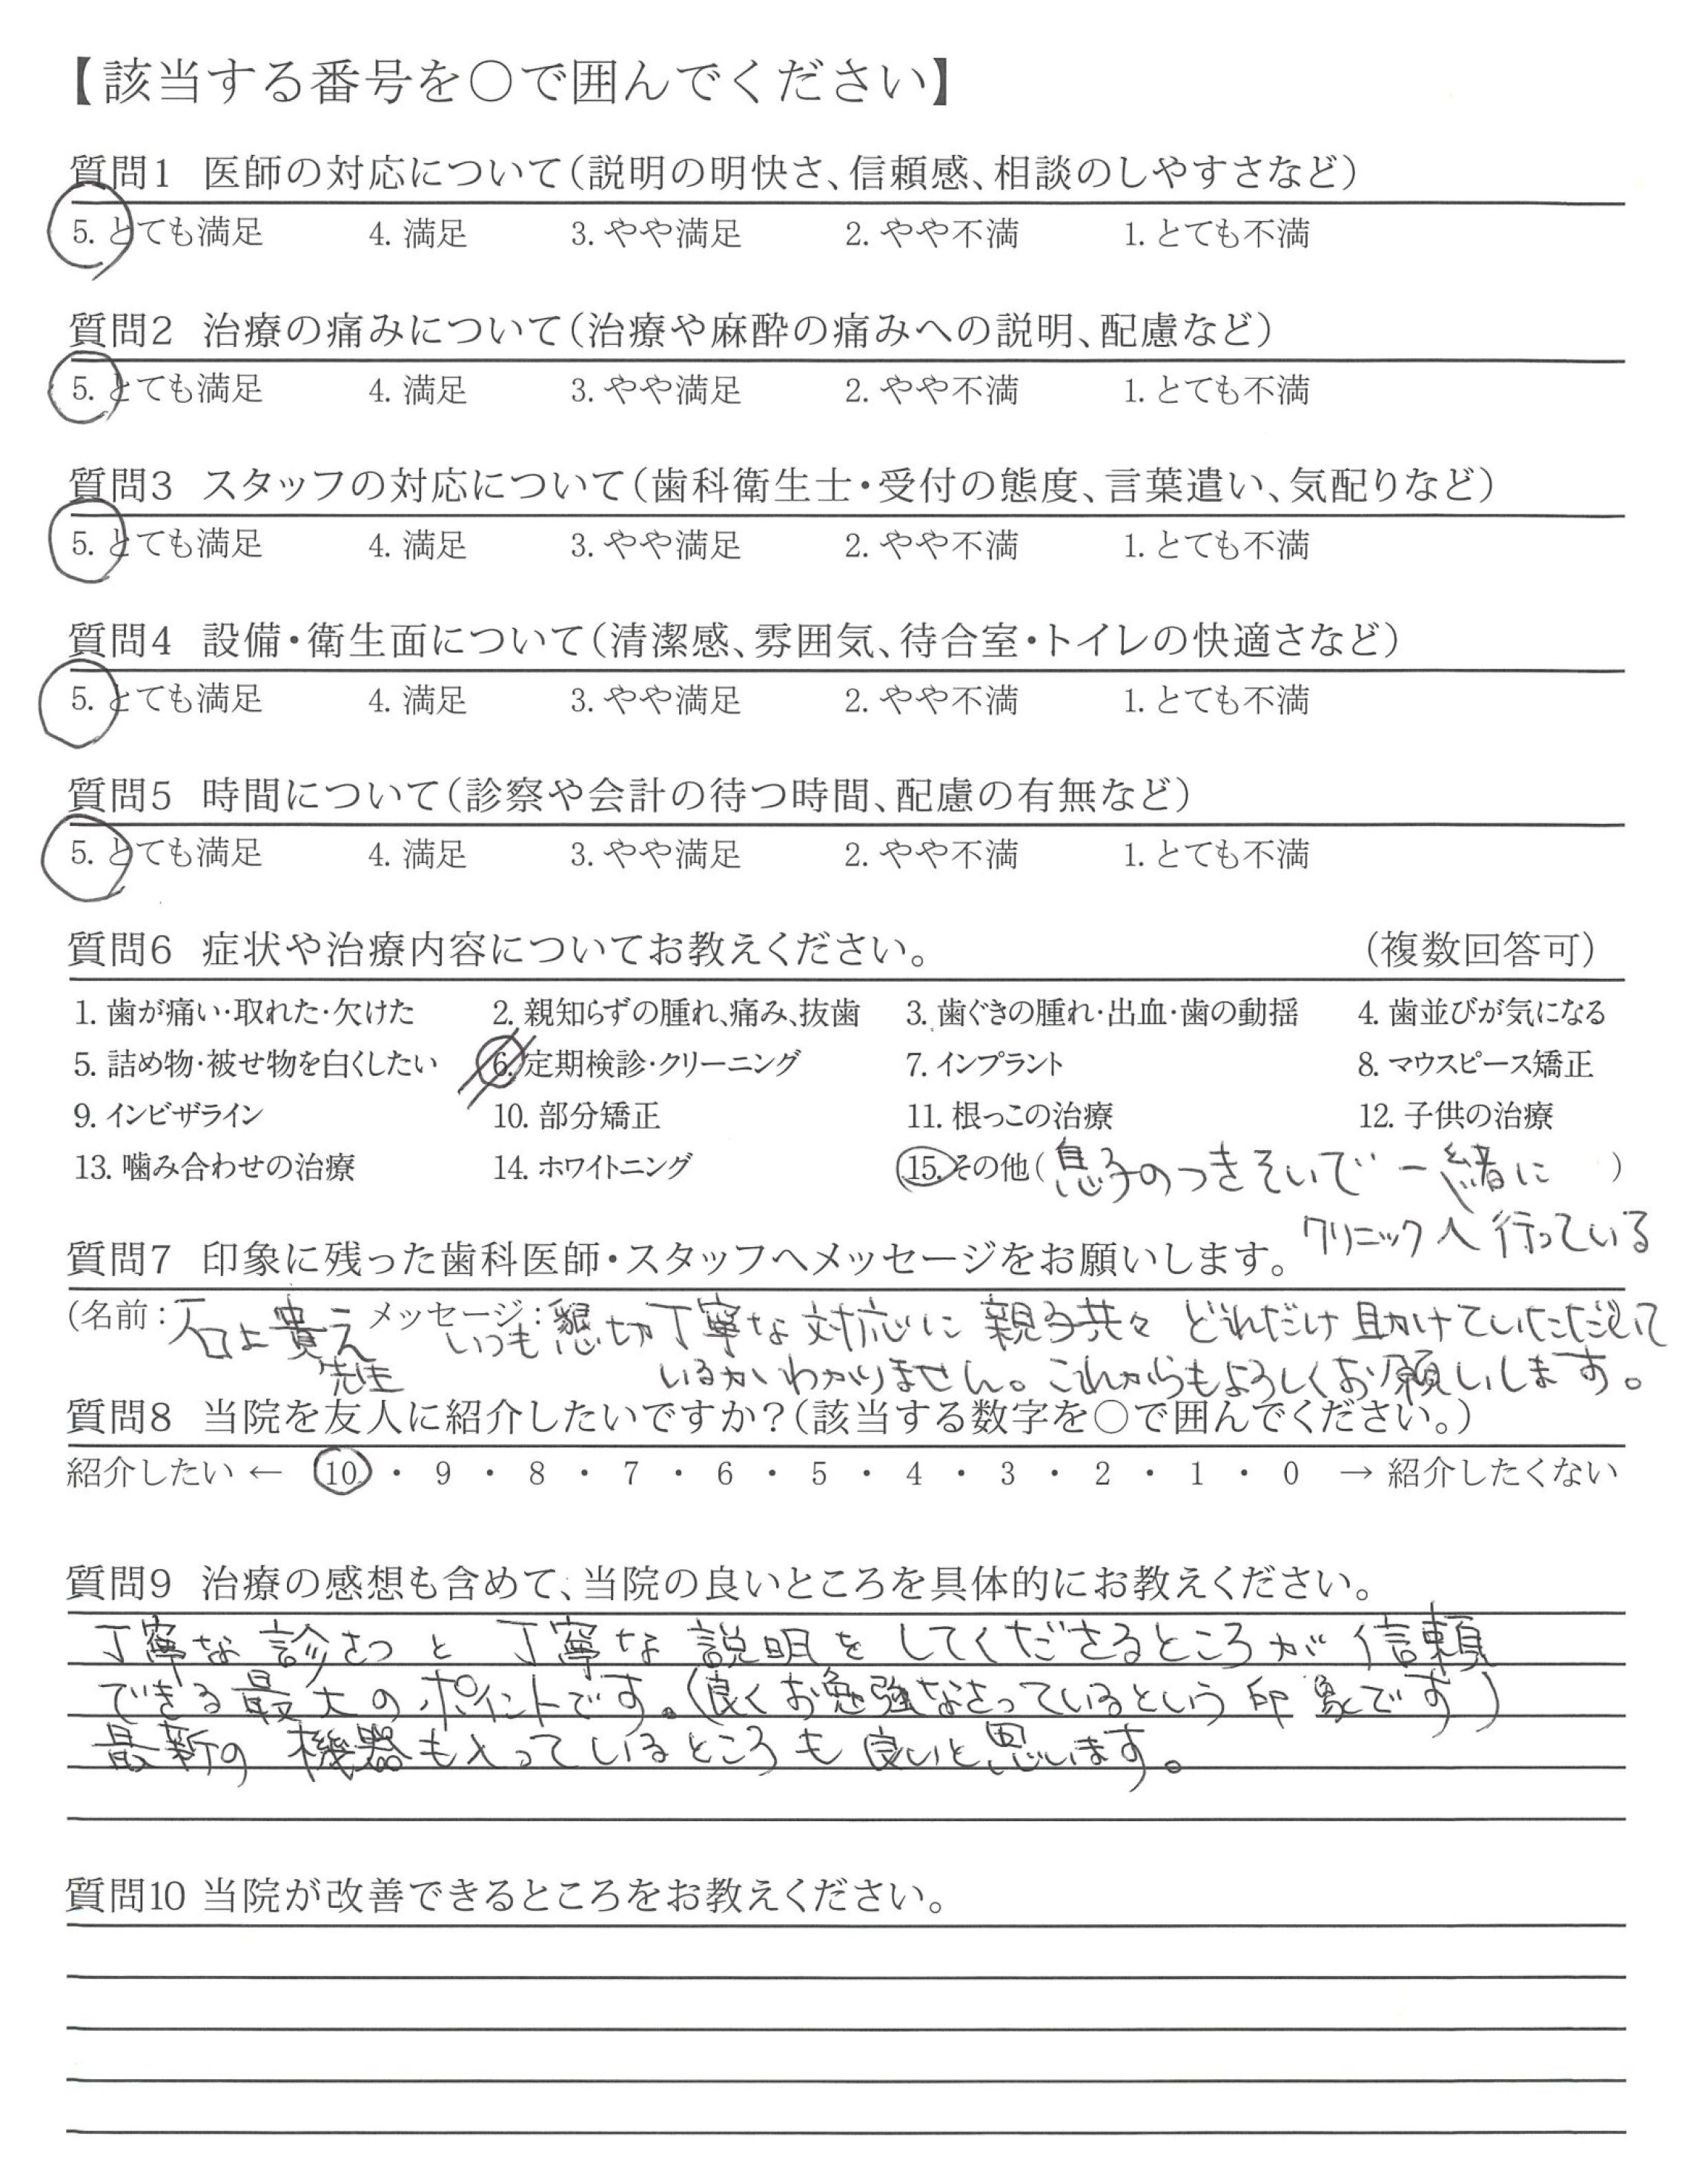 【該当する番号を○で囲んでください】
質問1 医師の対応について（説明の明快さ、信頼感、相談のしやすさなど）
5. とても満足 4. 満足 3. やや満足 2. やや不満 1. とても不満
質問2 治療の痛みについて（治療や麻酔の痛みへの説明、配慮など）
5. とても満足 4. 満足 3. やや満足 2. やや不満 1. とても不満
質問3 スタッフの対応について（歯科衛生士・受付の態度、言葉遣い、気配りなど）
5. とても満足 4. 満足 3. やや満足 2. やや不満 1. とても不満
質問4 設備・衛生面について（清潔感、雰囲気、待合室・トイレの快適さなど）
5. とても満足 4. 満足 3. やや満足 2. やや不満 1. とても不満
質問5 時間について（診察や会計の待つ時間、配慮の有無など）
5. とても満足 4. 満足 3. やや満足 2. やや不満 1. とても不満
質問6 症状や治療内容についてお教えください。 （複数回答可）
1. 歯が痛い・取れた・欠けた 2. 親知らずの腫れ、痛み、抜歯 3. 歯ぐきの腫れ・出血・歯の動揺 4. 歯並びが気になる
5. 詰め物・被せ物を白くしたい 6. 定期検診・クリーニング 7. インプラント 8. マウスピース矯正
9. インビザライン 10. 部分矯正 11. 根っこの治療 12. 子供の治療
13. 噛み合わせの治療 14. ホワイトニング 15. その他（息子のつきそいで一緒に ）
クリニックへ行っている
質問7 印象に残った歯科医師・スタッフへメッセージをお願いします。
(名前： メッセージ：いつも懇切丁寧な対応に親子共々どれだけ助けていただいて
先生 いるかわかりません。これからもよろしくお願いします。
質問8 当院を友人に紹介したいですか？（該当する数字を○で囲んでください。）
紹介したい ← 10 ・ 9 ・ 8 ・ 7 ・ 6 ・ 5 ・ 4 ・ 3 ・ 2 ・ 1 ・ 0 → 紹介したくない
質問9 治療の感想も含めて、当院の良いところを具体的にお教えください。
丁寧な診さつと丁寧な説明をしてくださるところが信頼
できる最大のポイントです。（良くお勉強なさっているという印象です）
最新の機器も入っているところも良いと思います。
質問10 当院が改善できるところをお教えください。